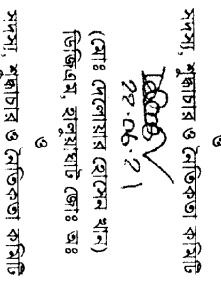 ও
সদস্য, শুদ্ধাচার ও নৈতিকতা কমিটি
22.06.21
(মোঃ দেলোয়ার হোসেন খান)
ডিজিএম, হালুয়াঘাট জোঃ অঃ
ও
সদস্য, শুদ্ধাচার ও নৈতিকতা কমিটি